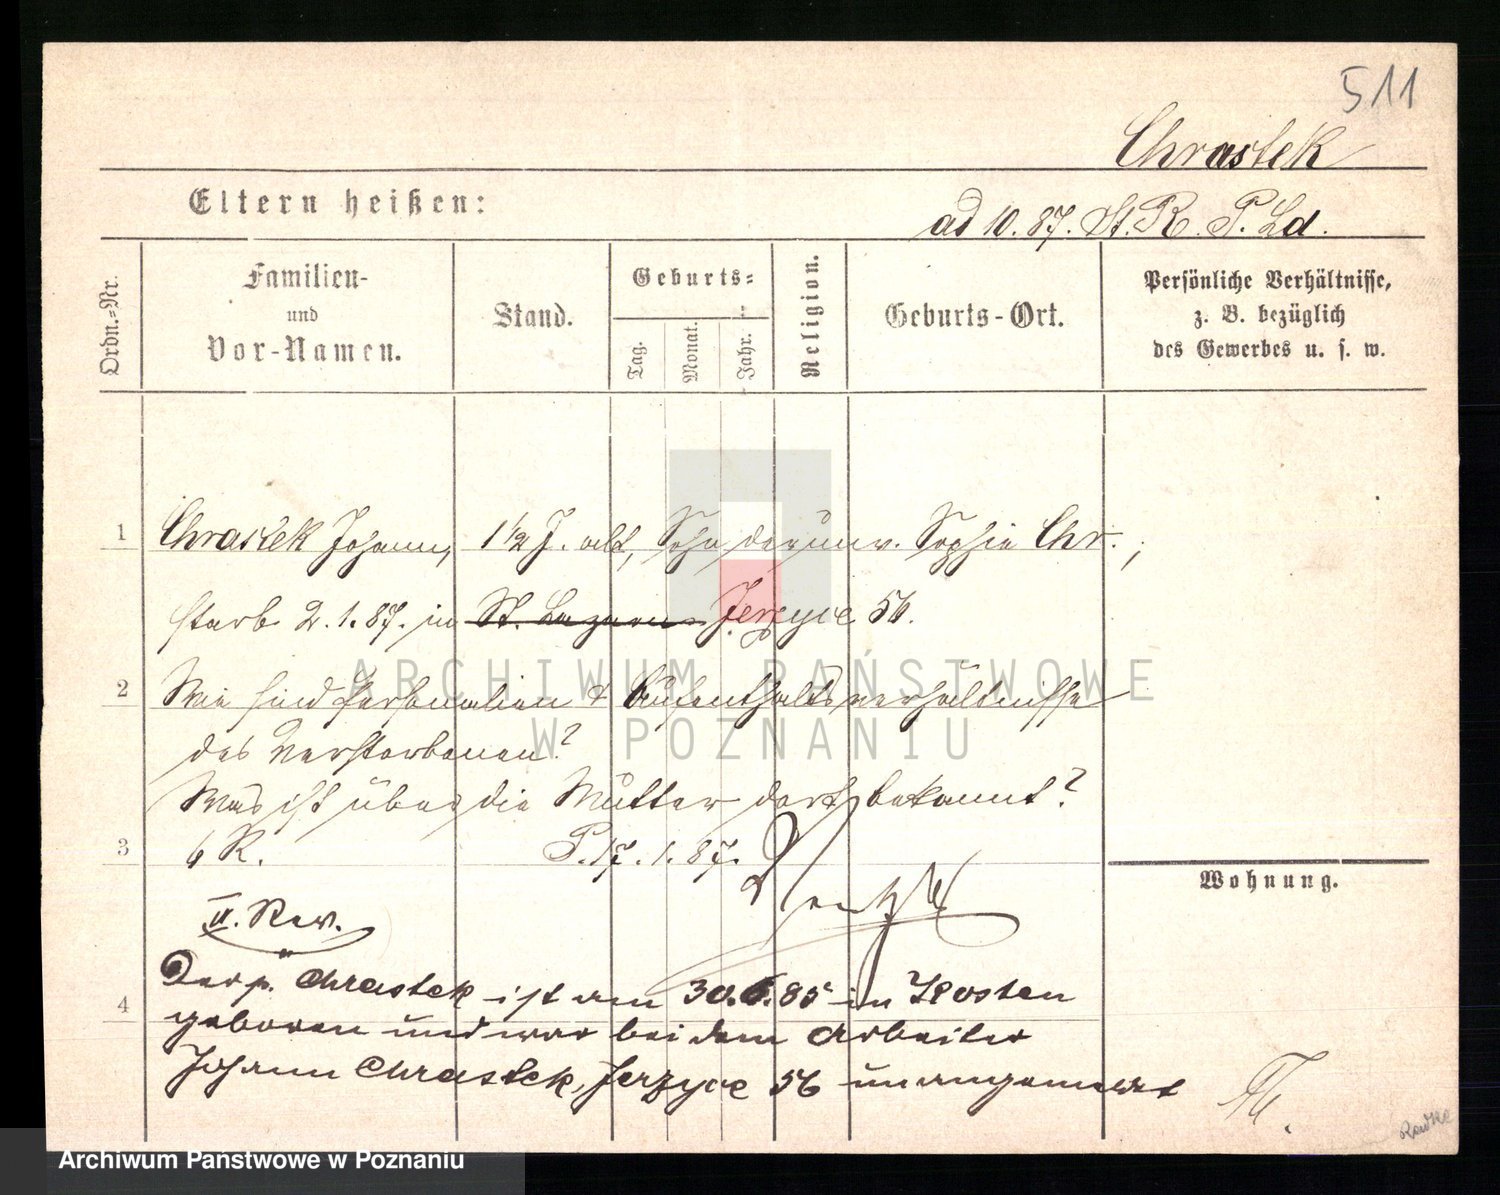 511
Chrastek
Eltern heißen:
ad 10. 87. St. R. P. Ld.
Ordn.=Nr.
Familien-
und
Vor-Namen.
Stand.
Geburts=
Tag.
Monat.
Jahr.
Religion.
Geburts-Ort.
Persönliche Verhältnisse,
z. B. bezüglich
des Gewerbes u. s. w.
1 Chrastek Johann, 1½ J. alt, Sohn der unv. Sophie Chr.,
starb 2. 1. 87. in St. Lazarus Jerzyce 56.
2 Wie sind Personalien & Aufenthaltsverhältnisse
des Verstorbenen?
Was ist über die Mutter dort bekannt?
3 6 R. P. 17. 1. 87.
Wohnung.
II. Rev.
Der p. Chrastek ist am 30.6.85 in Kosten
4 geboren und war bei dem Arbeiter
Johann Chrastek, Jerzyce 56 unangemeldet
ARCHIWUM PAŃSTWOWE
W POZNANIU
Archiwum Państwowe w Poznaniu